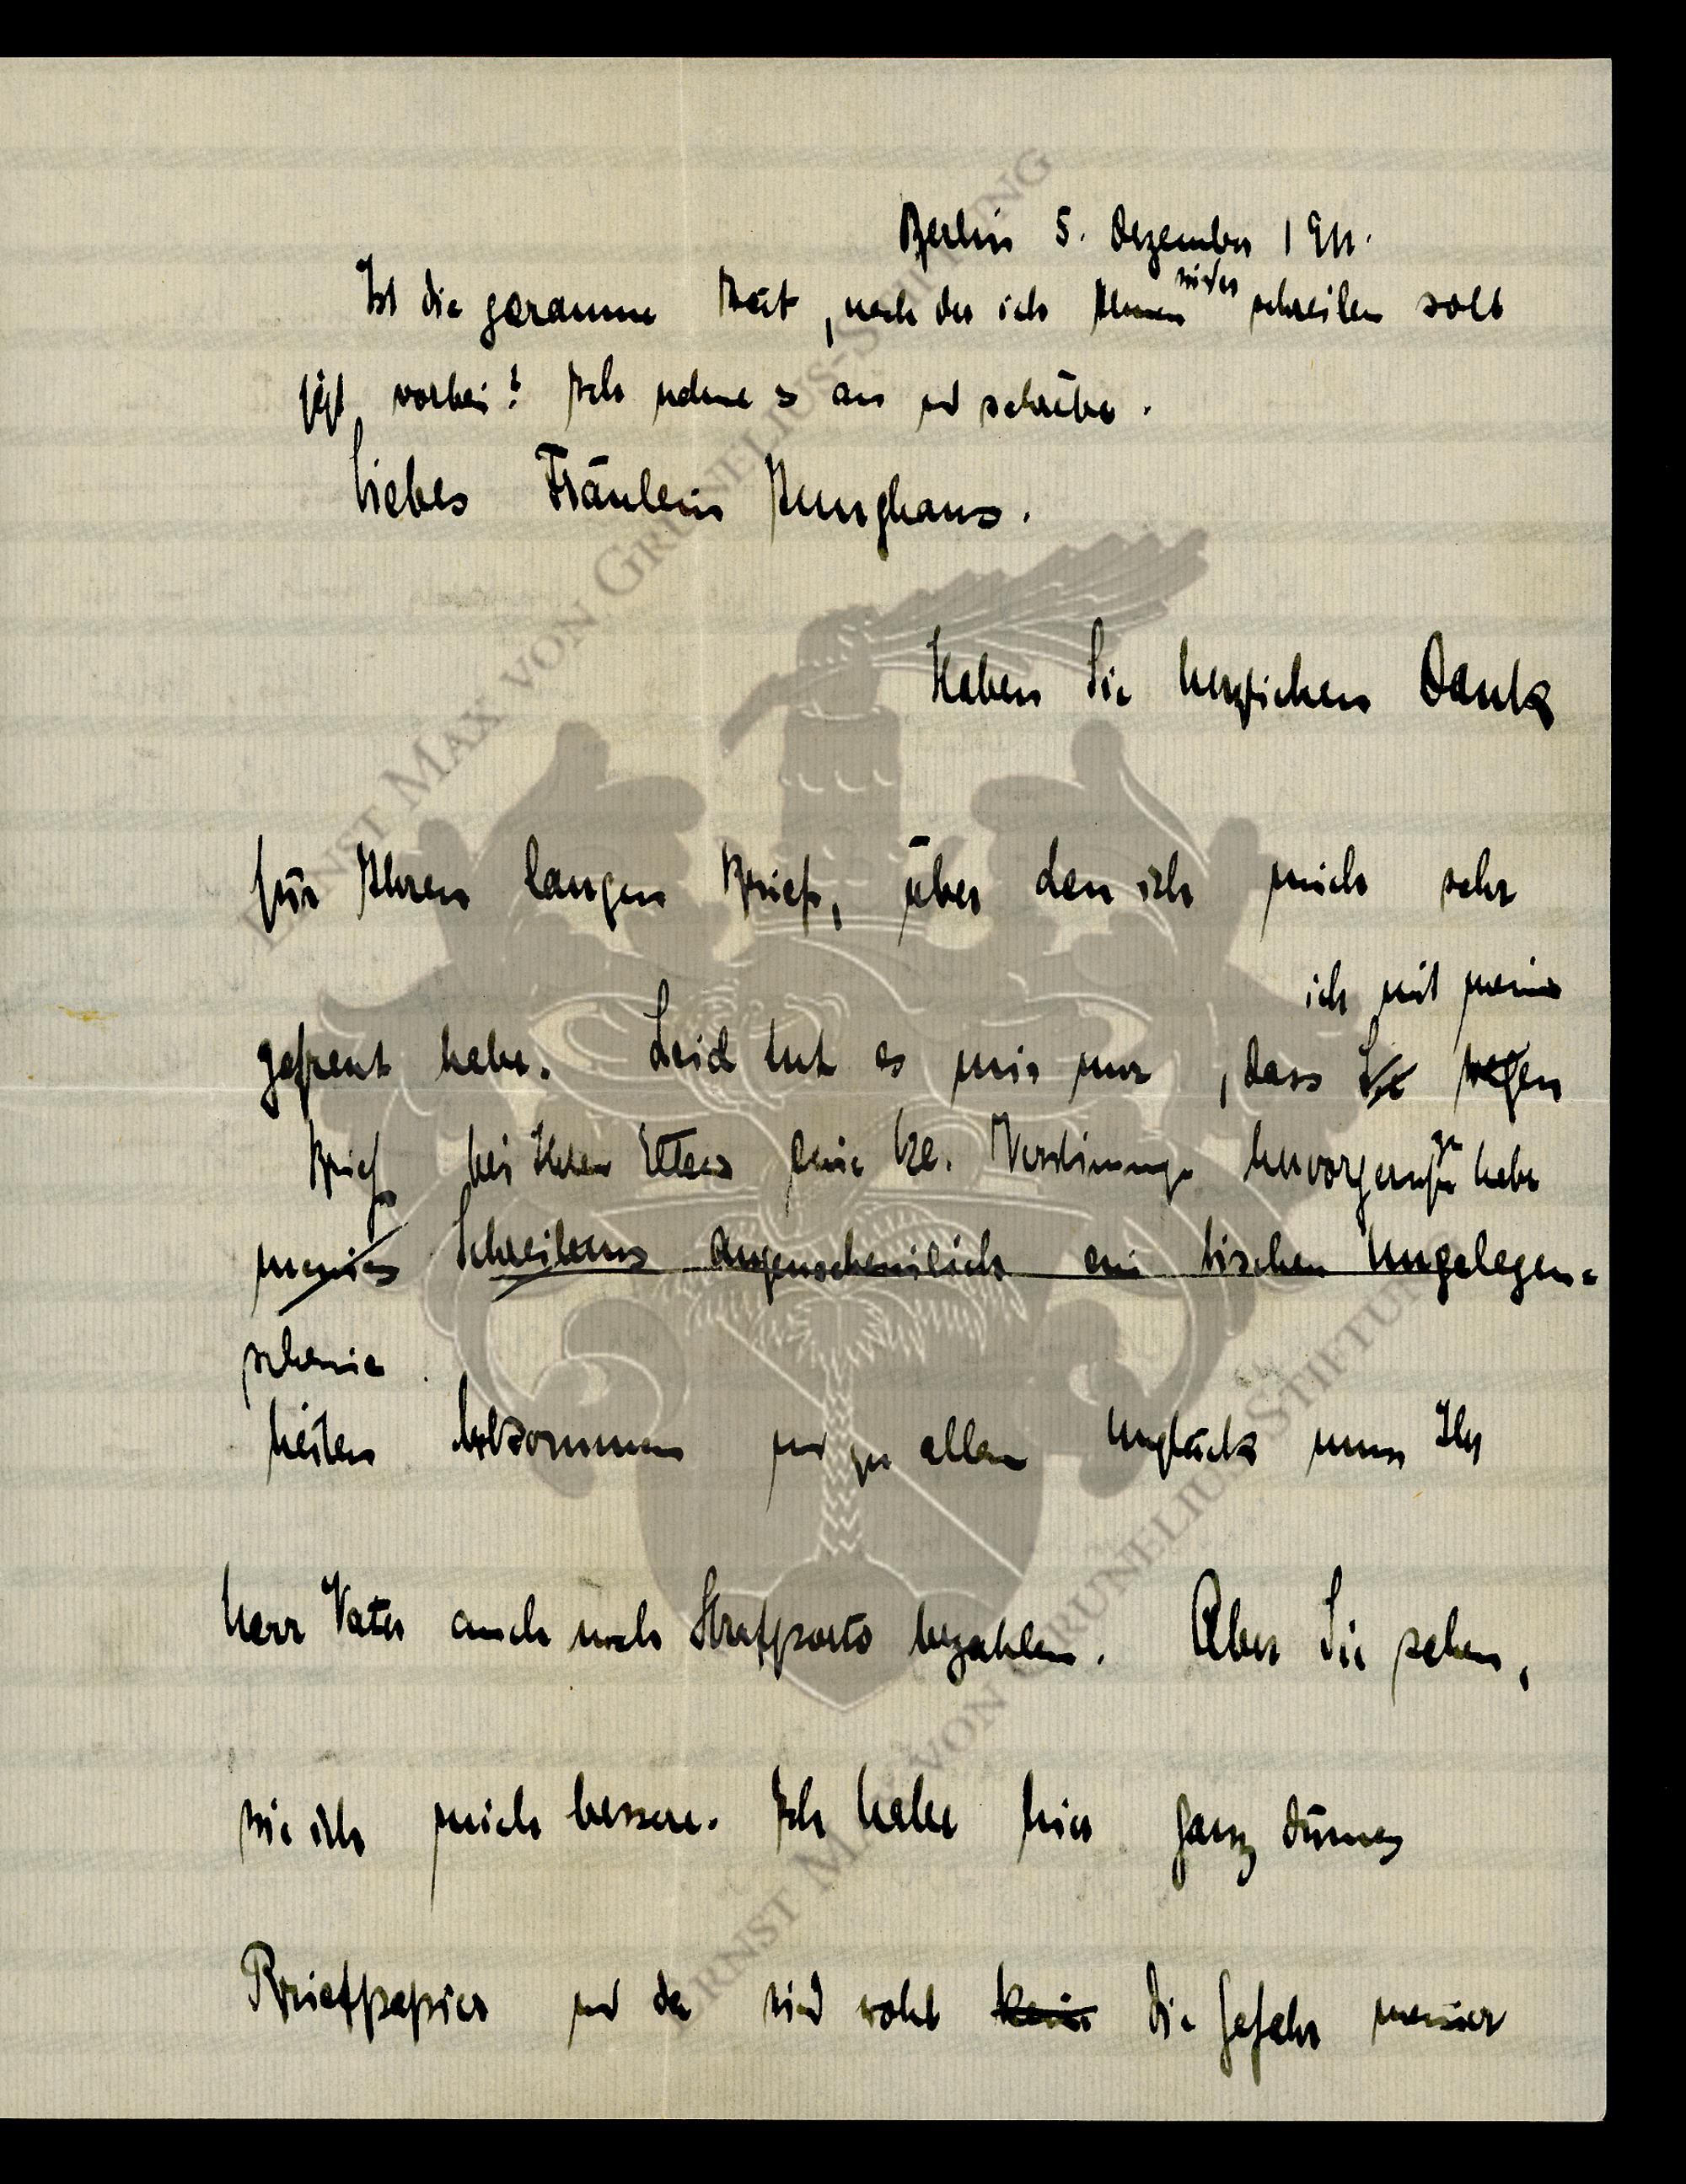 Berlin 5. Dezember 1911.
Ist die geraume Zeit, nach der ich Ihnen wieder schreiben soll
jetzt vorbei? Ich nehme es an und schreibe.
Liebes Fräulein Junghans.
Haben Sie herzlichen Dank
für Ihren langen Brief, über den ich mich sehr
ich mit meine
gefreut habe. Leid tut es mir nur, dass Sie wegen
Brief bei Ihren Eltern eine Verstimmung hervorgerufen habe
meines Schreibens augenscheinlich ein bischen Ungelegen=
scheine
heiten bekommen und zu allem Unglück muss Ihr
Herr Vater auch noch Strafporto bezahlen. Aber Sie sehen,
wie ich mich bessere. Ich habe hier ganz dünnes
Briefpapier und da wird wohl kein die Gefahr meiner
ERNST MAX VON GRUNELIUS-STIFTUNG
ERNST MAX VON GRUNELIUS-STIFTUNG